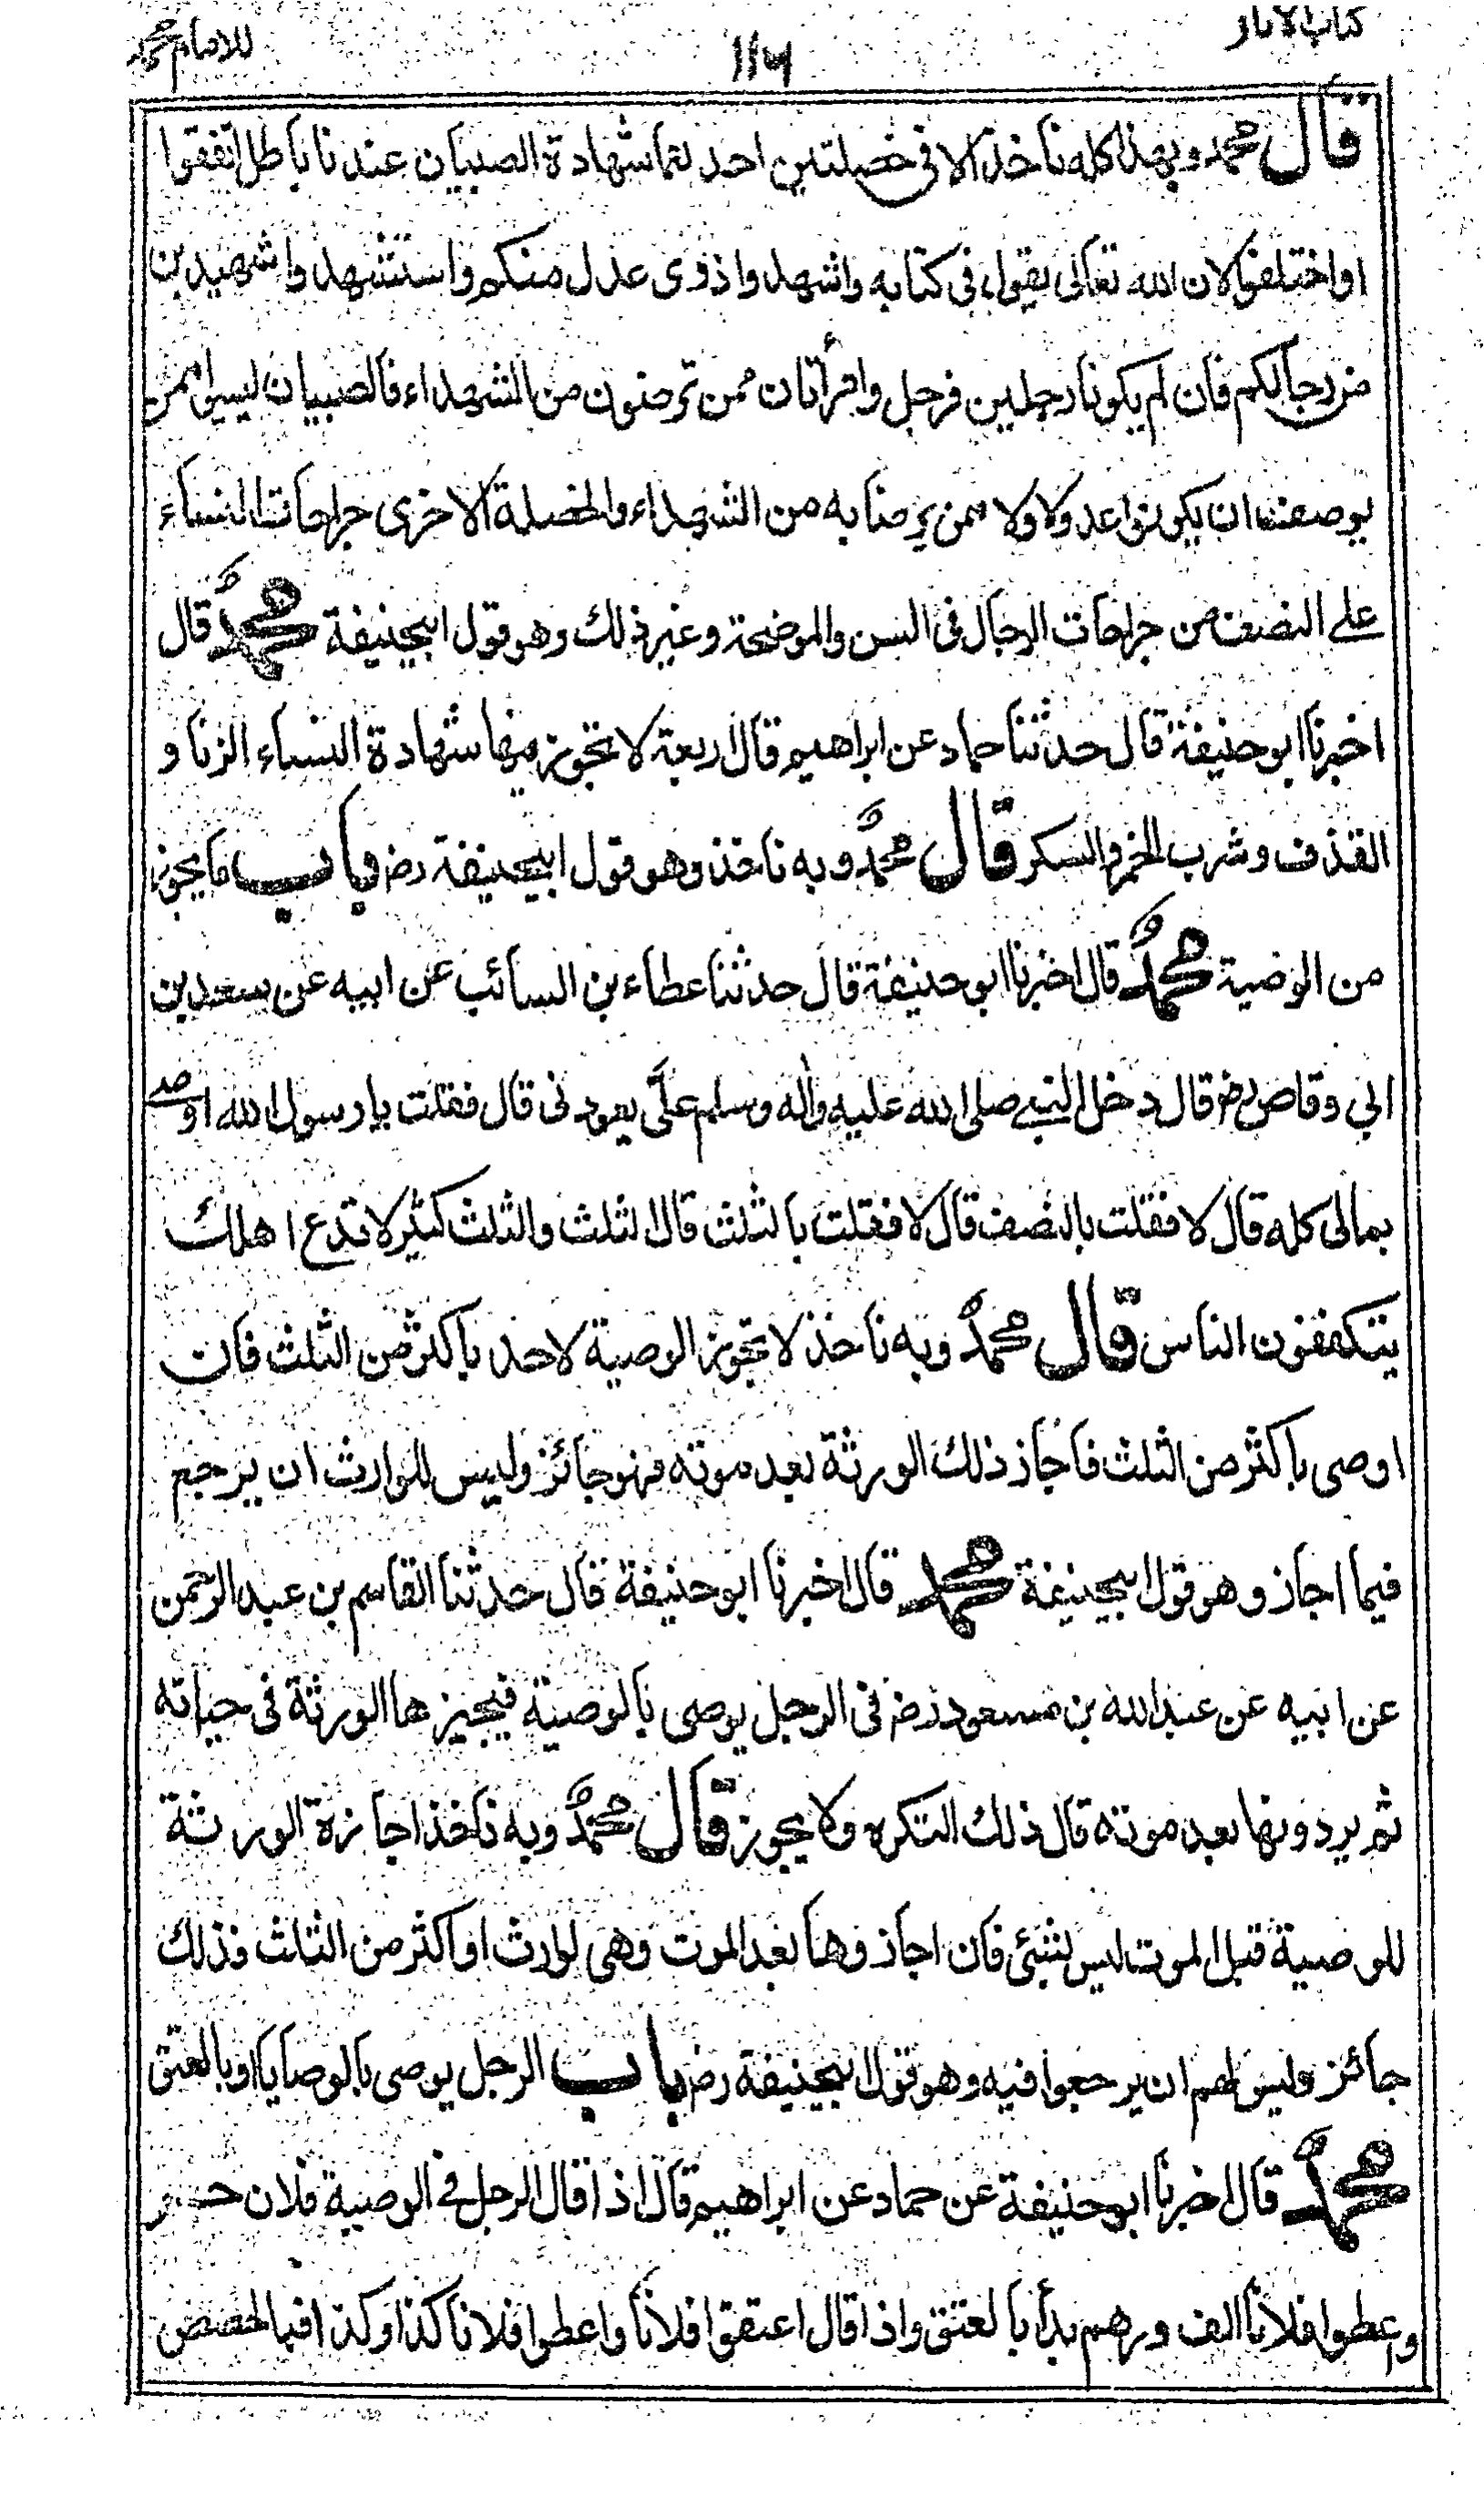 كتاب الآثار
١١٦
للامام محمد
قال محمد وبهذا كله ناخذ الا فى خصلتين احدٰهما شهادة الصبيان عندنا باطل اتفقوا
او اختلفوا لان الله تعالى يقول فى كتابه واشهدوا ذوى عدل منكم واستشهدوا شهيدين
من رجالكم فان لم يكونا رجلين فرجل وامرأتان ممن ترضون من الشهداء فالصبيان ليسوا ممن
يوصف ان يكونوا عدولا ولا ممن يرضا به من الشهداء والخصلة الاخرى جراحات النساء
على النصف من جراحات الرجال فى السن والموضحة وغير ذلك وهو قول ابيحنيفة محمد قال
اخبرنا ابو حنيفة قال حدثنا حماد عن ابراهيم قال اربعة لا تجوز فيها شهادة النساء الزنا و
القذف وشرب الخمر والسكر قال محمد وبه ناخذ وهو قول ابيحنيفة رض باب ما يجوز
من الوصية محمد قال اخبرنا ابو حنيفة قال حدثنا عطاء بن السائب عن ابيه عن سعد بن
ابي وقاص رض قال دخل النبى صلى الله عليه واٰله وسلم علىّ يعودنى قال فقلت يا رسول الله اوصى
بمالى كله قال لا فقلت بالنصف قال لا فقلت بالثلث قال الثلث والثلث كثير لا تدع اهلك
يتكففون الناس قال محمد وبه ناخذ لا تجوز الوصية لاحد باكثر من الثلث فان
اوصى باكثر من الثلث فاجاز ذلك الورثة بعد موته فهو جائز وليس للوارث ان يرجع
فيما اجاز وهو قول ابيحنيفة محمد قال اخبرنا ابو حنيفة قال حدثنا القاسم بن عبد الرحمن
عن ابيه عن عبد الله بن مسعود رض فى الرجل يوصى بالوصية فيجيزها الورثة فى حياته
ثم يردونها بعد موته قال ذلك التكره ولا يجوز قال محمد وبه ناخذ اجازة الورثة
للوصية قبل الموت ليس بشئ فان اجازوها بعد الموت وهى لوارث او اكثر من الثلث فذلك
جائز وليس لهم ان يرجعوا فيه وهو قول ابيحنيفة رض باب الرجل يوصى بالوصايا او بالعتق
محمد قال اخبرنا ابو حنيفة عن حماد عن ابراهيم قال اذا قال الرجل فى الوصية فلان حر
واعطوا فلانا الف درهم بدأ بالعتق واذا قال اعتقوا فلانا واعطوا فلانا كذا وكذا فبالحصص